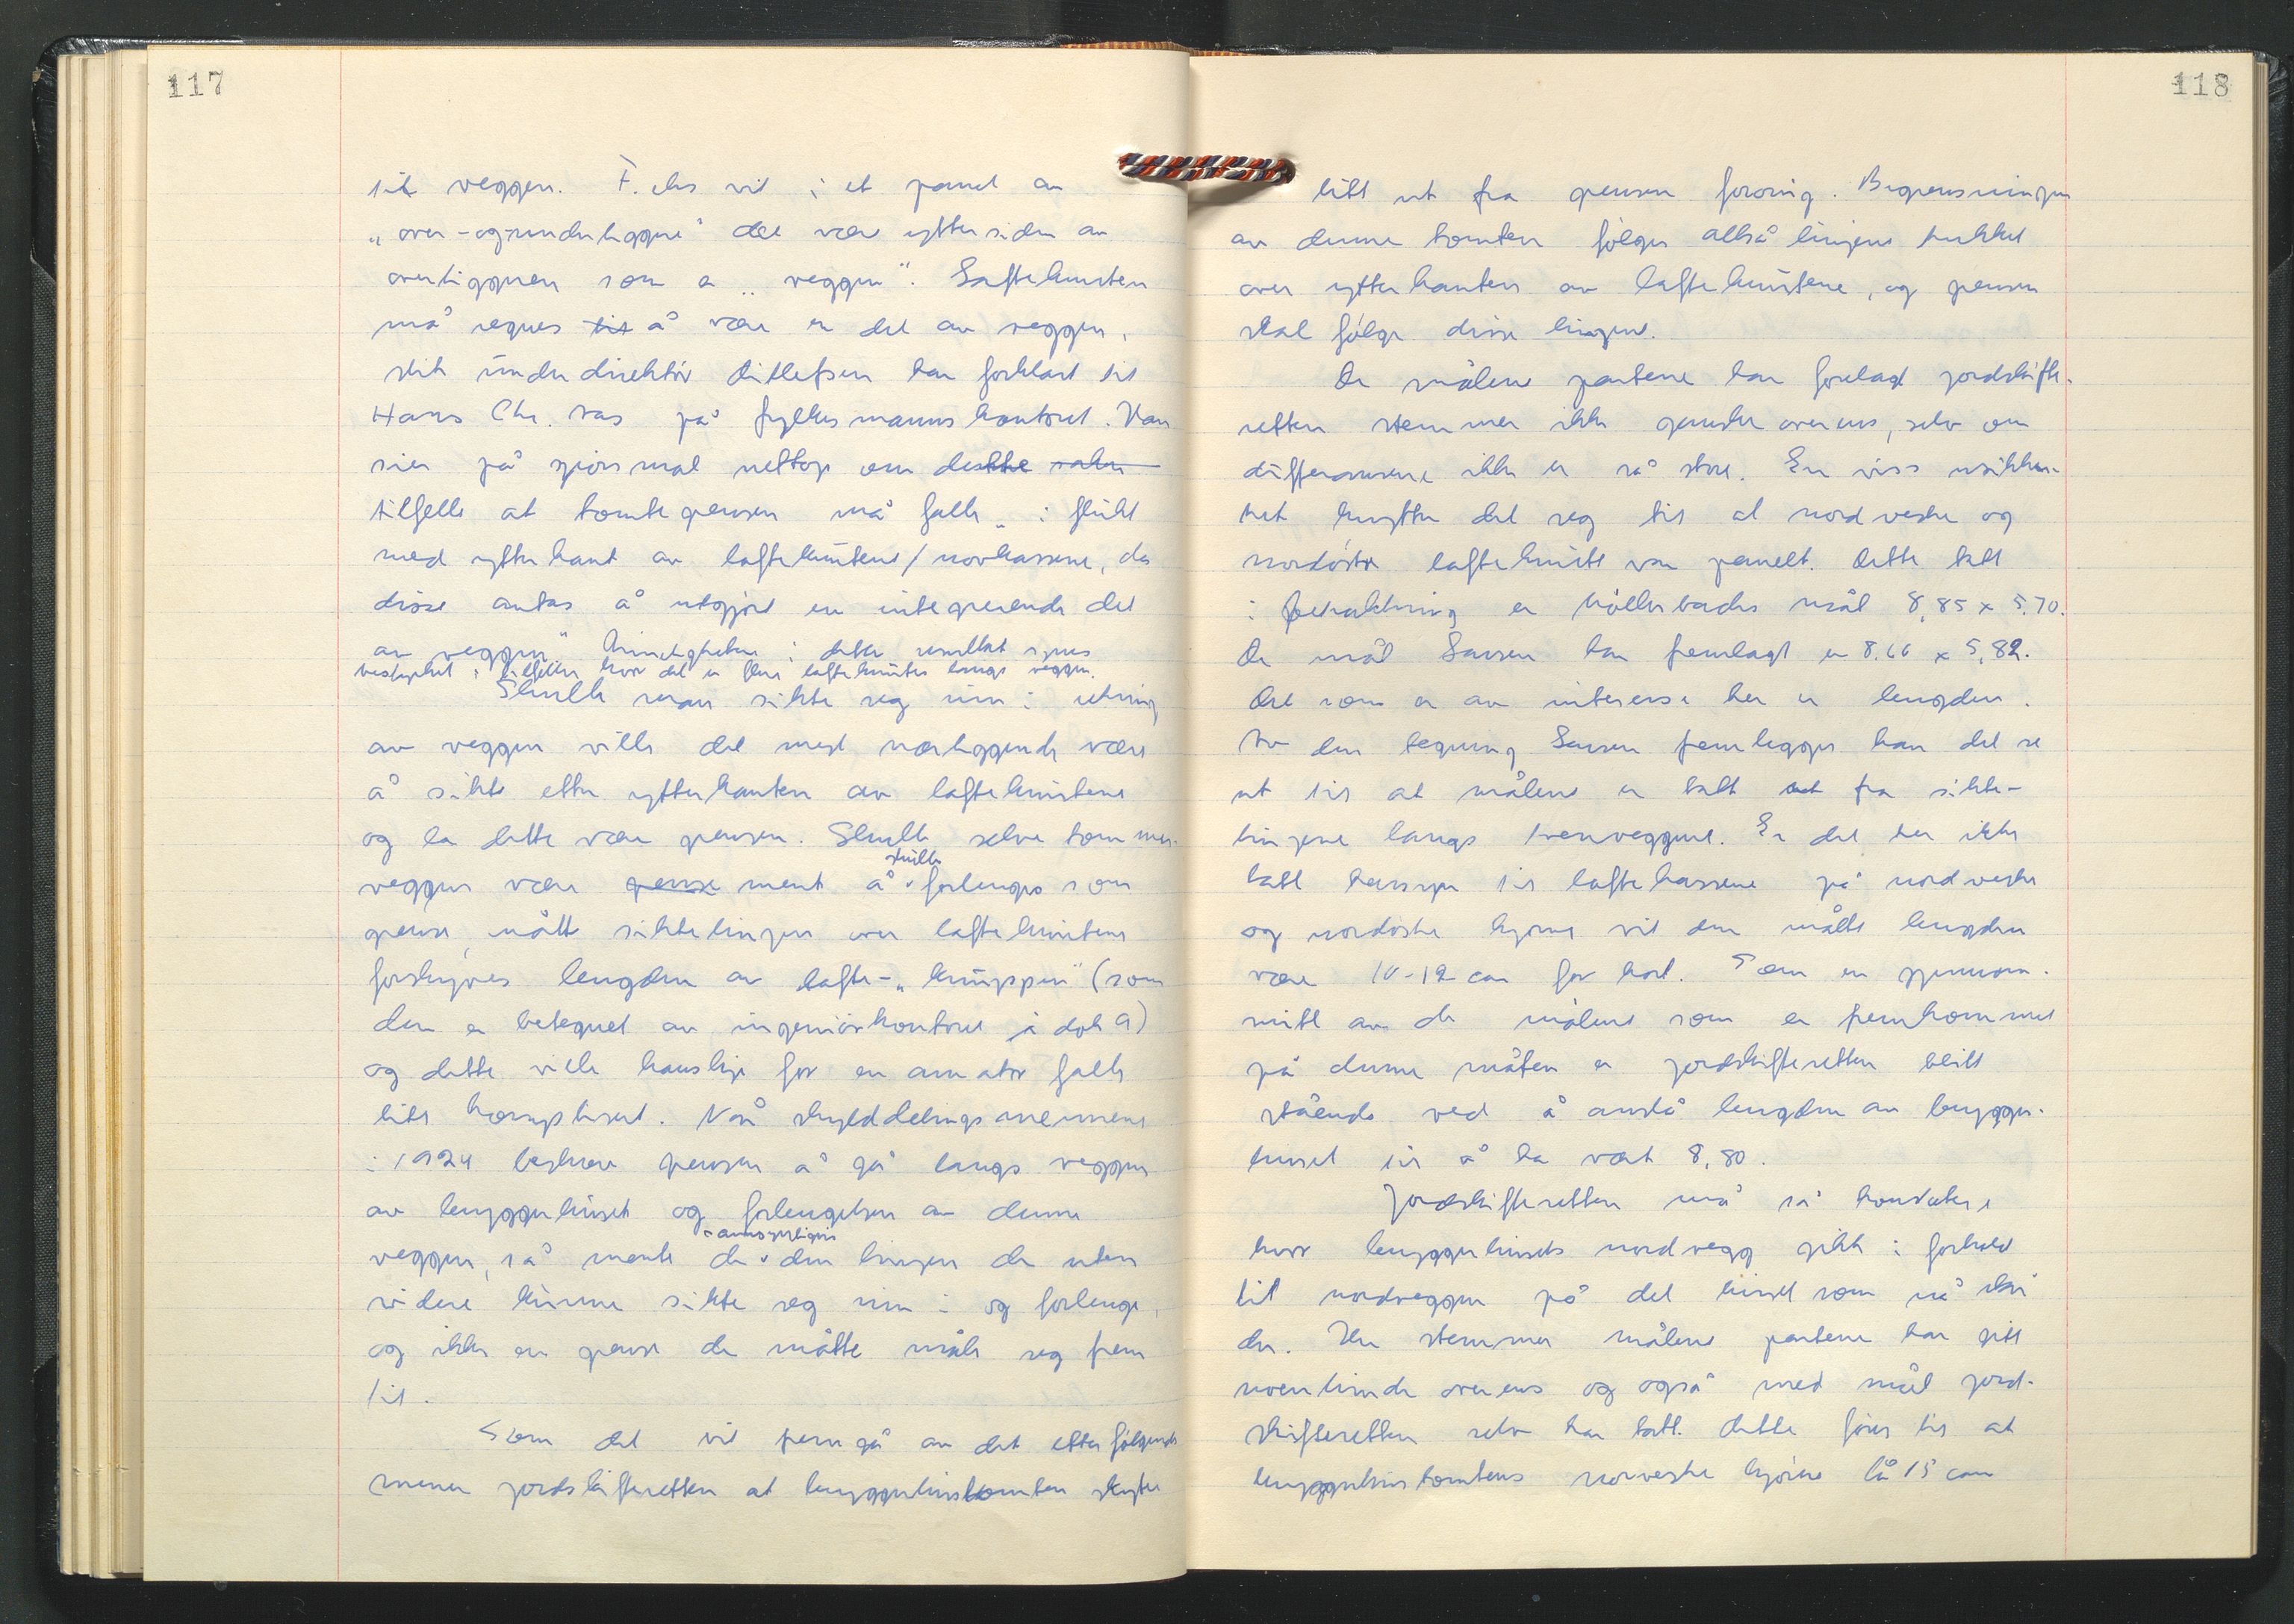 117
til veggen. F.eks vil i et panel av
„over-og-underliggere" det være yttersiden av
overliggeren som er „veggen". Lafteknuten
må regnes til å være en del av veggen,
slik underdirektør Ditlefsen har forklart til
Hans Chr. Aas på fylkesmannskontoret. Han
sier på spørsmål nettopp om dette
tilfelle at tomtegrensen må falle „i flukt
med ytterkant av lafteknutene/novkassene, da
disse antas å utgjøre en integrerende del
av veggen" Rimeligheten i dette resultat synes
bestyrket i tilfeller hvor det er flere lafteknuter langs veggen.
Skulle man sikte seg inn i retning
av veggen ville det mest nærliggende være
å sikte etter ytterkanten av lafteknutene
og la dette være grensen. Skulle selve tømmer-
skulle
veggen være grense ment å forlenges som
grense, måtte siktelinjen over lafteknutene
forskyves lengden av lafte-„knuppen" (som
den er betegnet av ingeniørkontoret i dok 9)
og dette ville kanskje for en amatør falle
litt komplisert. Når skylddelingsmennene
i 1924 beskrev grensen å gå langs veggen
av bryggerhuset og forlengelsen av denne
sannsynligvis
veggen, så mente de den linjen de uten
videre kunne sikte seg inn i og forlenge,
og ikke en grense de måtte måle seg frem
til.
Som det vil fremgå av det etterfølgende
mener jordskifteretten at bryggerhustomten skyter
118
litt ut fra grensen forøvrig. Begrensningen
av denne tomten følger altså linjene trukket
over ytterkanten av lafteknutene, og grensen
skal følge disse linjene.
De målene partene har forelagt jordskifte-
retten stemmer ikke ganske overens, selv om
differansene ikke er så store. En viss usikker-
het knytter det seg til at nordvestre og
nordøstre lafteknute var panelt. Dette tatt
i betraktning er Møllerbachs mål 8,85 x 5,70.
De mål Larsen har fremlagt er 8.66 x 5,82.
Det som er av interesse her er lengden.
Av den tegning Larsen fremlegger kan det se
ut til at målene er tatt ut fra sikte-
linjene langs tverrveggene. Er det her ikke
tatt hensyn til laftekassene på nordvestre
og nordøstre hjørne vil den målte lengden
være 10-12 cm for kort. Som en gjennom-
snitt av de målene som er fremkommet
på denne måten er jordskifteretten blitt
stående ved å anslå lengden av brygger-
huset til å ha vært 8,80.
Jordskifteretten må så konstatere
hvor bryggerhusets nordvegg gikk i forhold
til nordveggen på det huset som nå står
der. Her stemmer målene partene har gitt
noenlunde overens og også med mål jord-
skifteretten selv har tatt. Dette fører til at
bryggerhustomtens norvestre hjørne lå 15 cm